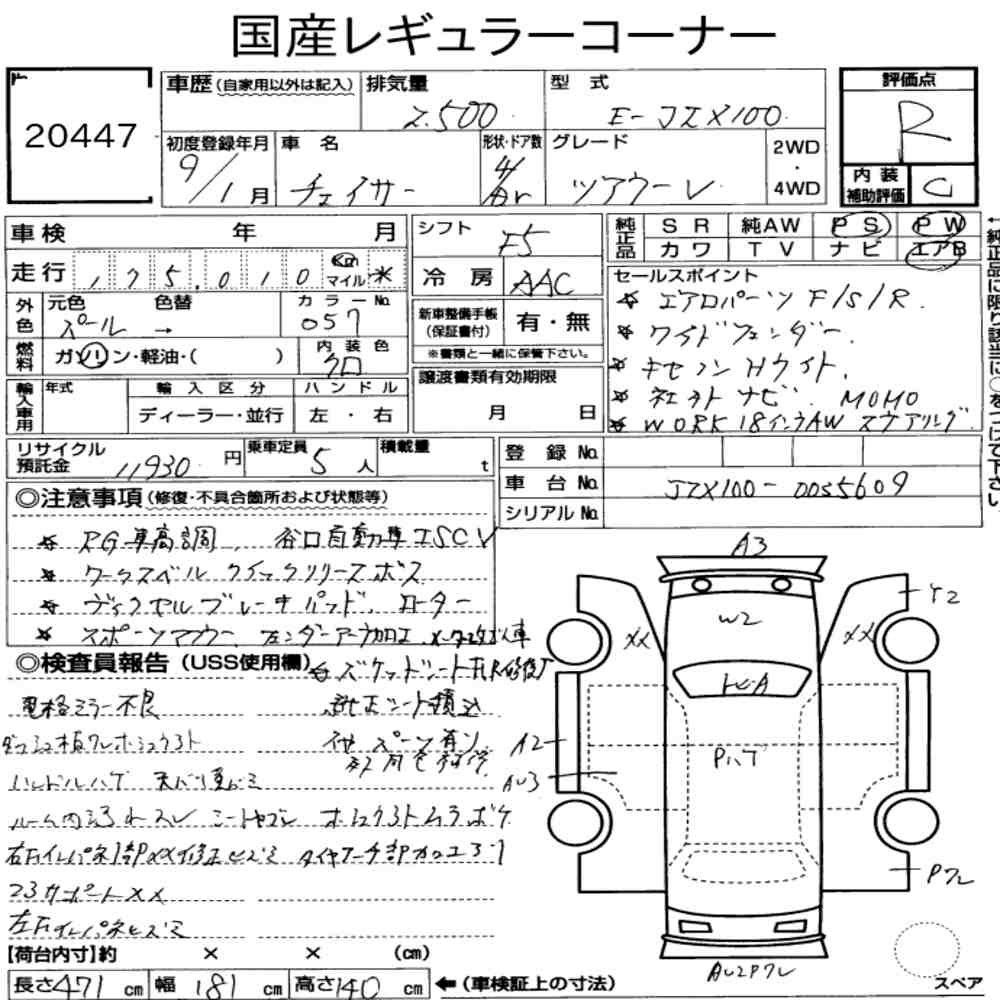 国産レギュラーコーナー
20447
車歴(自家用以外は記入) 排気量 2.500 型式 E-JZX100 評価点 R
初度登録年月 9/1月 車名 チェイサー 形状・ドア数 4/Ar グレード ツアラーV 2WD・4WD 内装補助評価 C
車検 年 月 シフト F5 純正品 SR 純AW PS PW
カワ TV ナビ エアB
走行 175,010 Km マイル * 冷房 AAC セールスポイント
☆ エアロパーツ F/S/R.
外色 元色 パール 色替 → カラーNo. 057 新車整備手帳(保証書付) 有・無
☆ ワイドフェンダー.
※書類と一緒に保管下さい。
燃料 ガソリン・軽油・( ) 内装色 クロ
☆ キセノンHライト.
譲渡書類有効期限 月 日
☆ 社外ナビ. MOMO
輸入車用 年式 輸入区分 ディーラー・並行 ハンドル 左・右
☆ WORK 18インチAW ステアリング
←純正品に限り該当に○をつけて下さい。
リサイクル預託金 11930円 乗車定員 5人 積載量 t 登録No.
車台No. JZX100-0055609
シリアルNo.
◎注意事項(修復・不具合箇所および状態等)
☆ RG車高調, 谷口自動車ISCV
☆ ワークスベル クイックリリースボス
☆ ディクセルブレーキパッド, ローター
☆ スポーツマフラー フェンダーアーチ加工
◎検査員報告(USS使用欄)
電格ミラー不良 純正シート積込
ダッシュ板ワレ
ハンドルハゲ
ルーム内汚れスレ シートヤブレ
右リヤインパネ部XX修正ヒズミ タイヤアーチ部カロエ
コアサポートXX
左リヤインパネヒズミ
A3
Y2
W2
XX XX
トビA
A2
AU3
Pハゲ
Pワレ
AU2Pワレ
スペア
【荷台内寸】約 × × (cm)
長さ471cm 幅181cm 高さ140cm ←(車検証上の寸法)